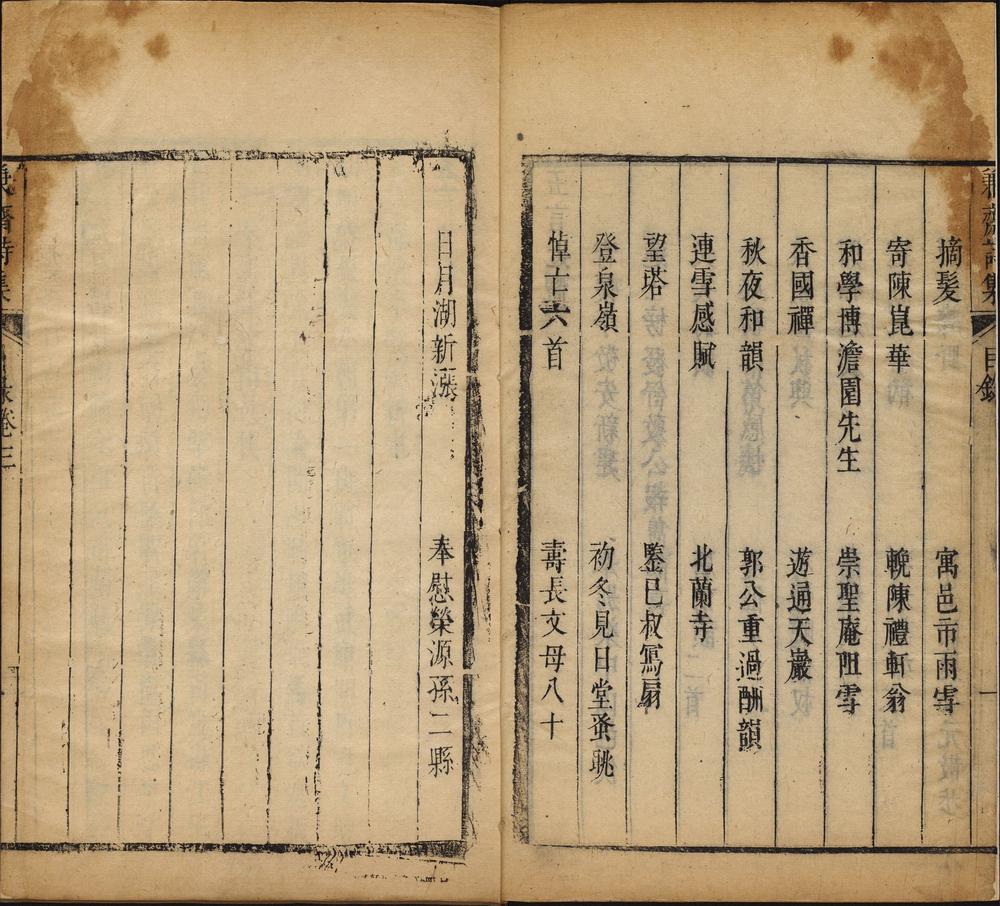 目錄
摘髮　寓邑市雨雪
寄陳崑華　輓陳禮軒翁
和學博澹園先生　崇聖庵阻雪
香國禪　遊通天巖
秋夜和韻　郭公重過酬韻
連雪感賦　北蘭寺
望塔　鑒巳叔寫扇
登泉嶺　初冬見日堂蚤眺
悼亡六首　壽長文母八十
日月湖新漲　奉慰榮源孫二縣
齋詩集
卷三